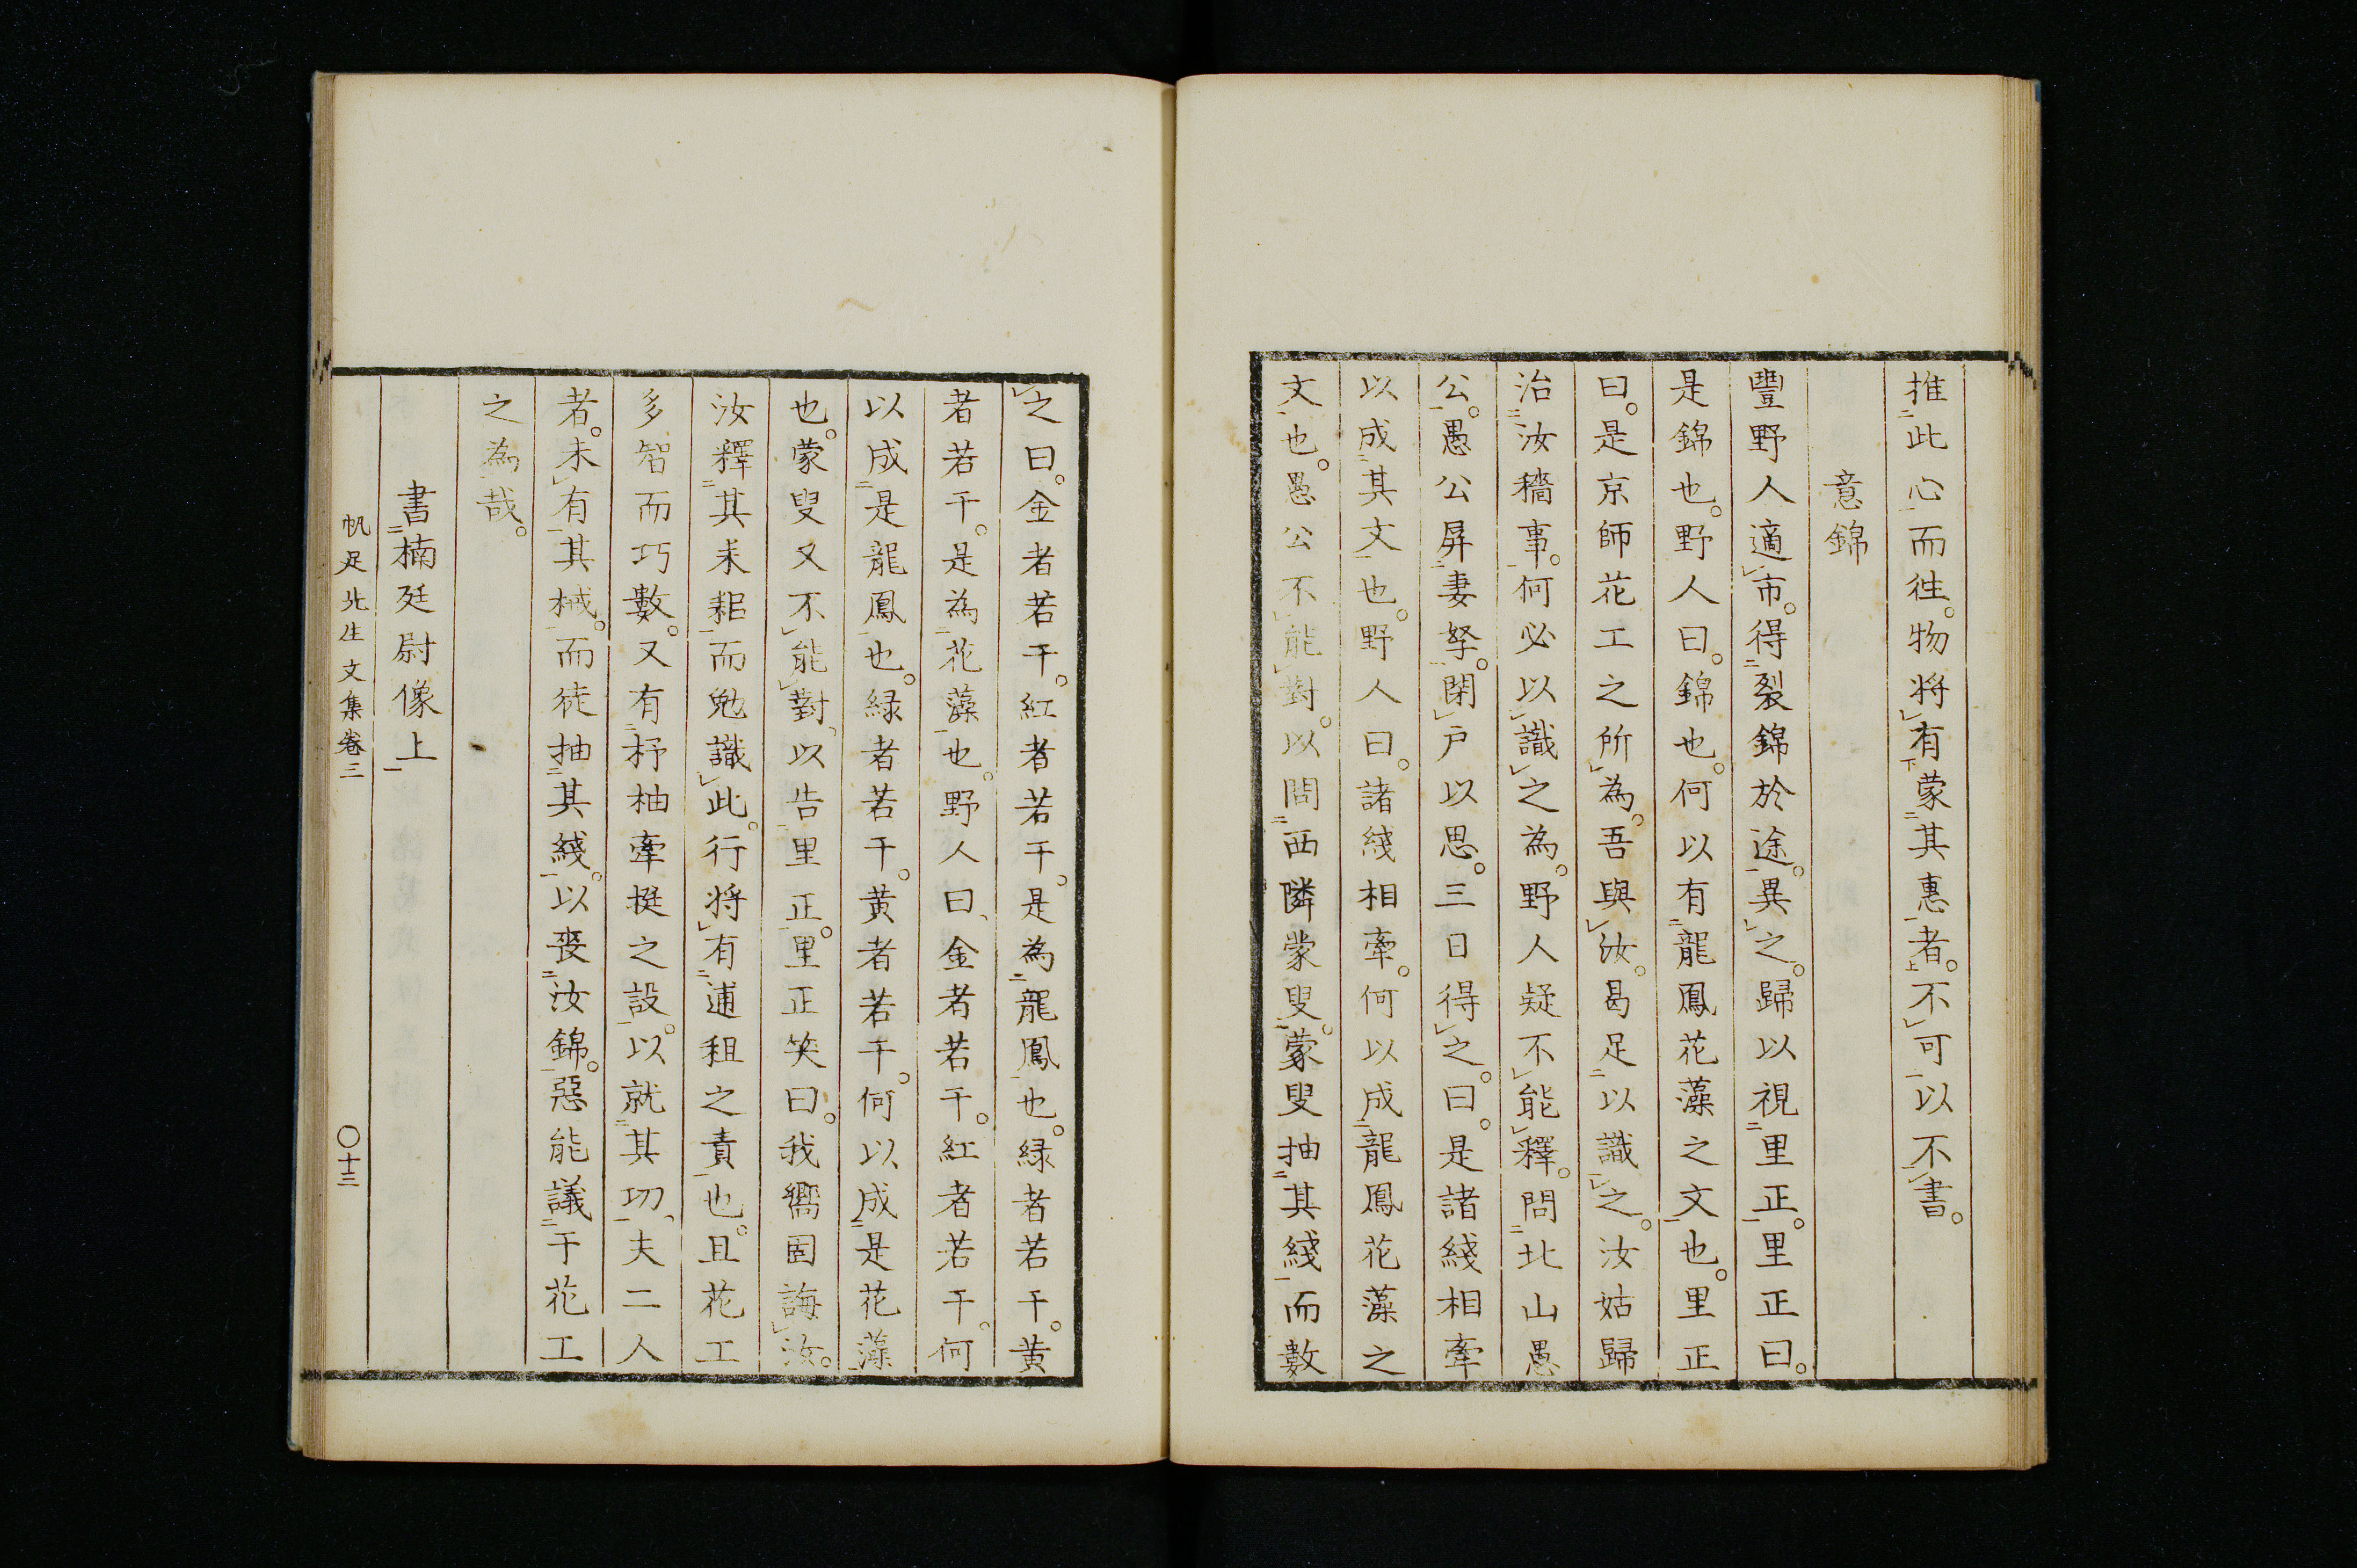 推此心而徃。物将有蒙其惠者。不可以不書。
意錦
豐野人適市。得裂錦於途。異之。歸以視里正。里正曰。
是錦也。野人曰。錦也。何以有龍鳳花藻之文也。里正
曰。是京師花工之所為。吾與汝。曷足以識之。汝姑歸
治汝穡事。何必以識之為。野人疑不能釋。問北山愚
公。愚公屏妻孥。閑戶以思。三日得之。曰。是諸綫相牽
以成其文也。野人曰。諸綫相牽。何以成龍鳳花藻之
文也。愚公不能對。以問西隣蒙叟。蒙叟抽其綫而數
之曰。金者若干。紅者若干。是為龍鳳也。緑者若干。黄
者若干。是為花藻也。野人曰、金者若干。紅者若干。何
以成是龍鳳也。緑者若干。黄者若干。何以成是花藻
也。蒙叟又不能對、以告里正。里正笑曰。我嚮固誨汝。
汝釋其耒耜而勉識此。行将有逋租之責也。且花工
多智而巧數。又有杼柚牽挺之設。以就其功、夫二人
者。未有其械。而徒抽其綫。以喪汝錦。惡能議于花工
之為哉。
書楠廷尉像上
帆足先生文集卷三
〇十三